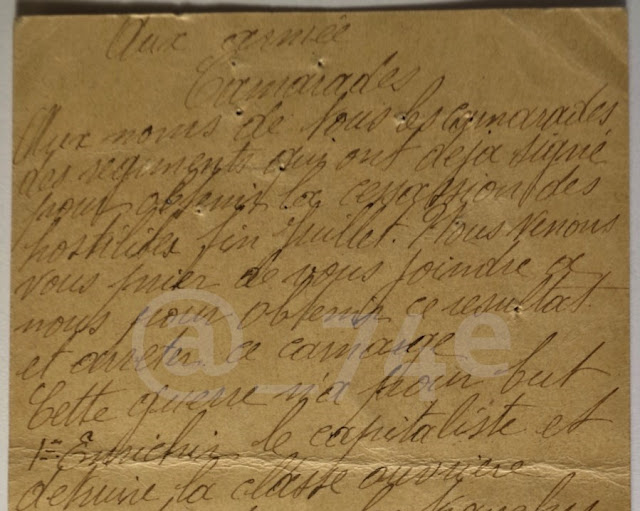 Aux armée
Camarades
Aux noms de tous les camarades
des regiments qui ont deja signé
pour obtenir la cessassion des
hostilites fin juillet. Nous venons
vous prier de vous joindre a
nous pour obtenir ce resultat
et arreter ce carnage
Cette guerre n'a pour but
1= Enrichir le capitaliste et
detruire la classe ouvriere
@_74e